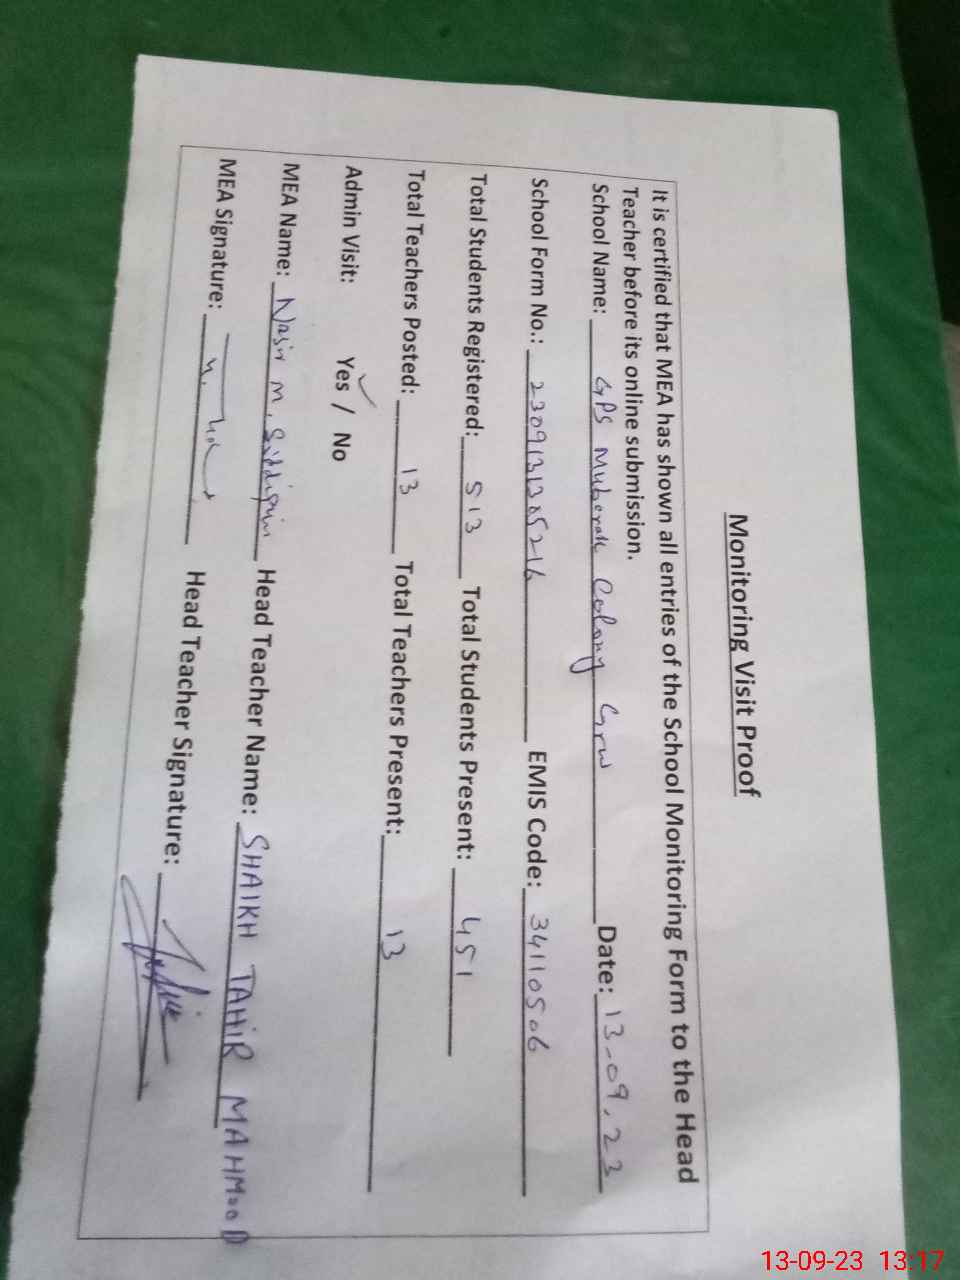 Monitoring Visit Proof
It is certified that MEA has shown all entries of the School Monitoring Form to the Head
Teacher before its online submission.
School Name: GPS Mubarak Colony Grw Date: 13-09.23
School Form No.: 2309131305216 EMIS Code: 34110506
Total Students Registered: 513 Total Students Present: 451
Total Teachers Posted: 13 Total Teachers Present: 13
Admin Visit: Yes / No
MEA Name: Nasir M. Siddiqui Head Teacher Name: SHAIKH TAHIR MAHMOOD
MEA Signature: Head Teacher Signature:
13-09-23 13:17